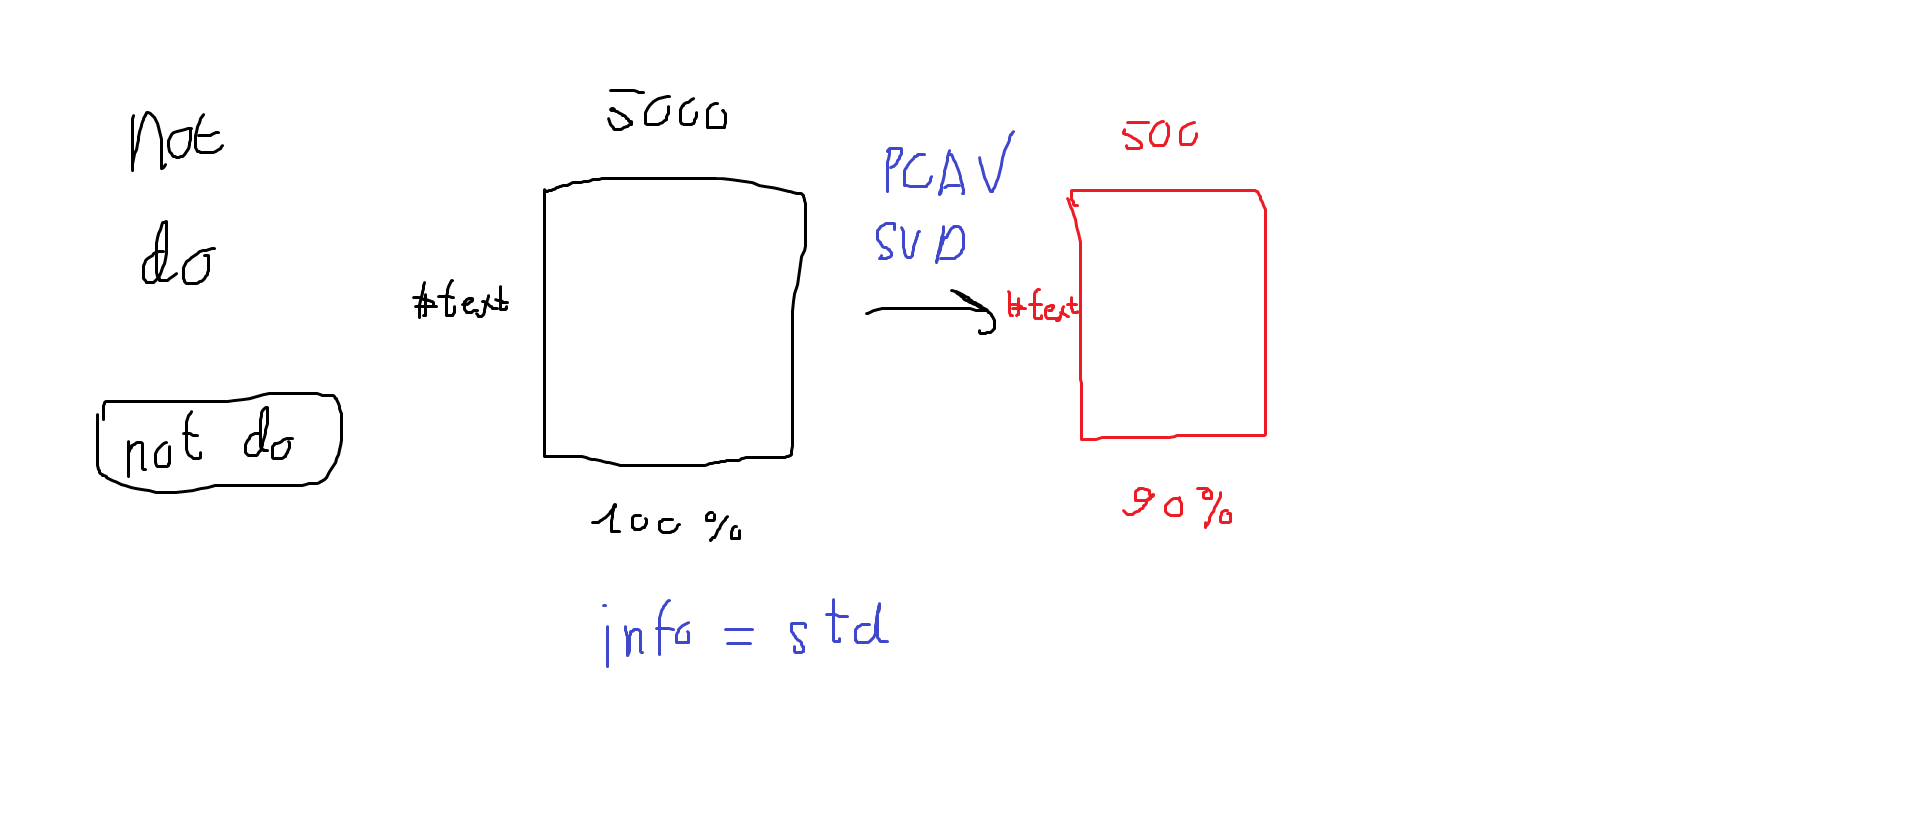 not
do
not do
5000
#text
100%
PCA √
SVD
500
#text
90%
info = std